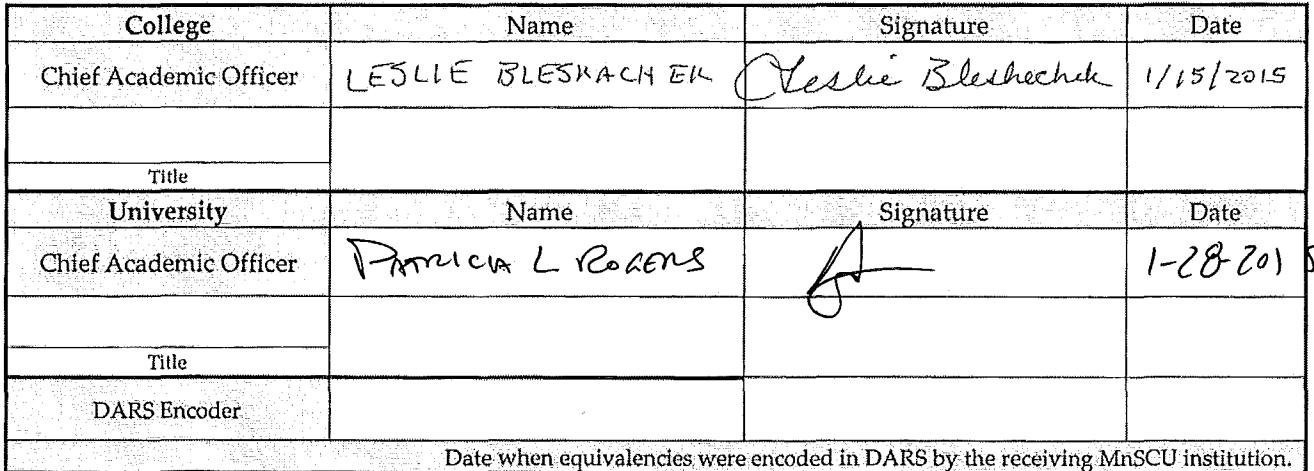 College Name Signature Date
Chief Academic Officer LESLIE BLESKACHEK Leslie Bleskachek 1/15/2015
Title
University Name Signature Date
Chief Academic Officer PATRICIA L ROGERS 1-28-2015
Title
DARS Encoder
Date when equivalencies were encoded in DARS by the receiving MnSCU institution.